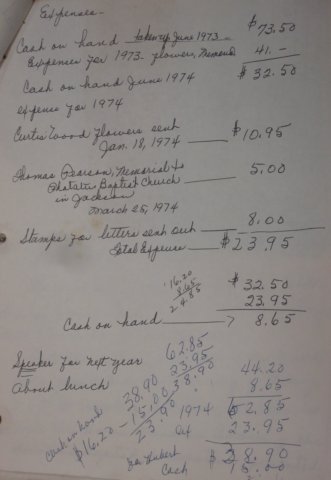 Expenses —
Cash on hand — taken up June 1973 — $73.50
Expenses for 1973 flowers, Memorial 41.—
Cash on hand June 1974 $32.50
expense for 1974
Curtis Wood flowers sent
Jan. 18, 1974 — $10.95
Thomas Pearson, Memorial to
Baptist Church — 5.00
in Jackson
March 25, 1974
Stamps for letters sent out — 8.00
Total Expense — $23.95
16.20
8.65
24.85
$32.50
23.95
Cash on hand — > 8.65
Speaker for next year
About lunch
62.85
23.95
38.90
38.90
15.00
23.90
Cash on hand
$16.20 —
1974
44.20
8.65
52.85
23.95
$38.90
15.00
Hubert
Cash